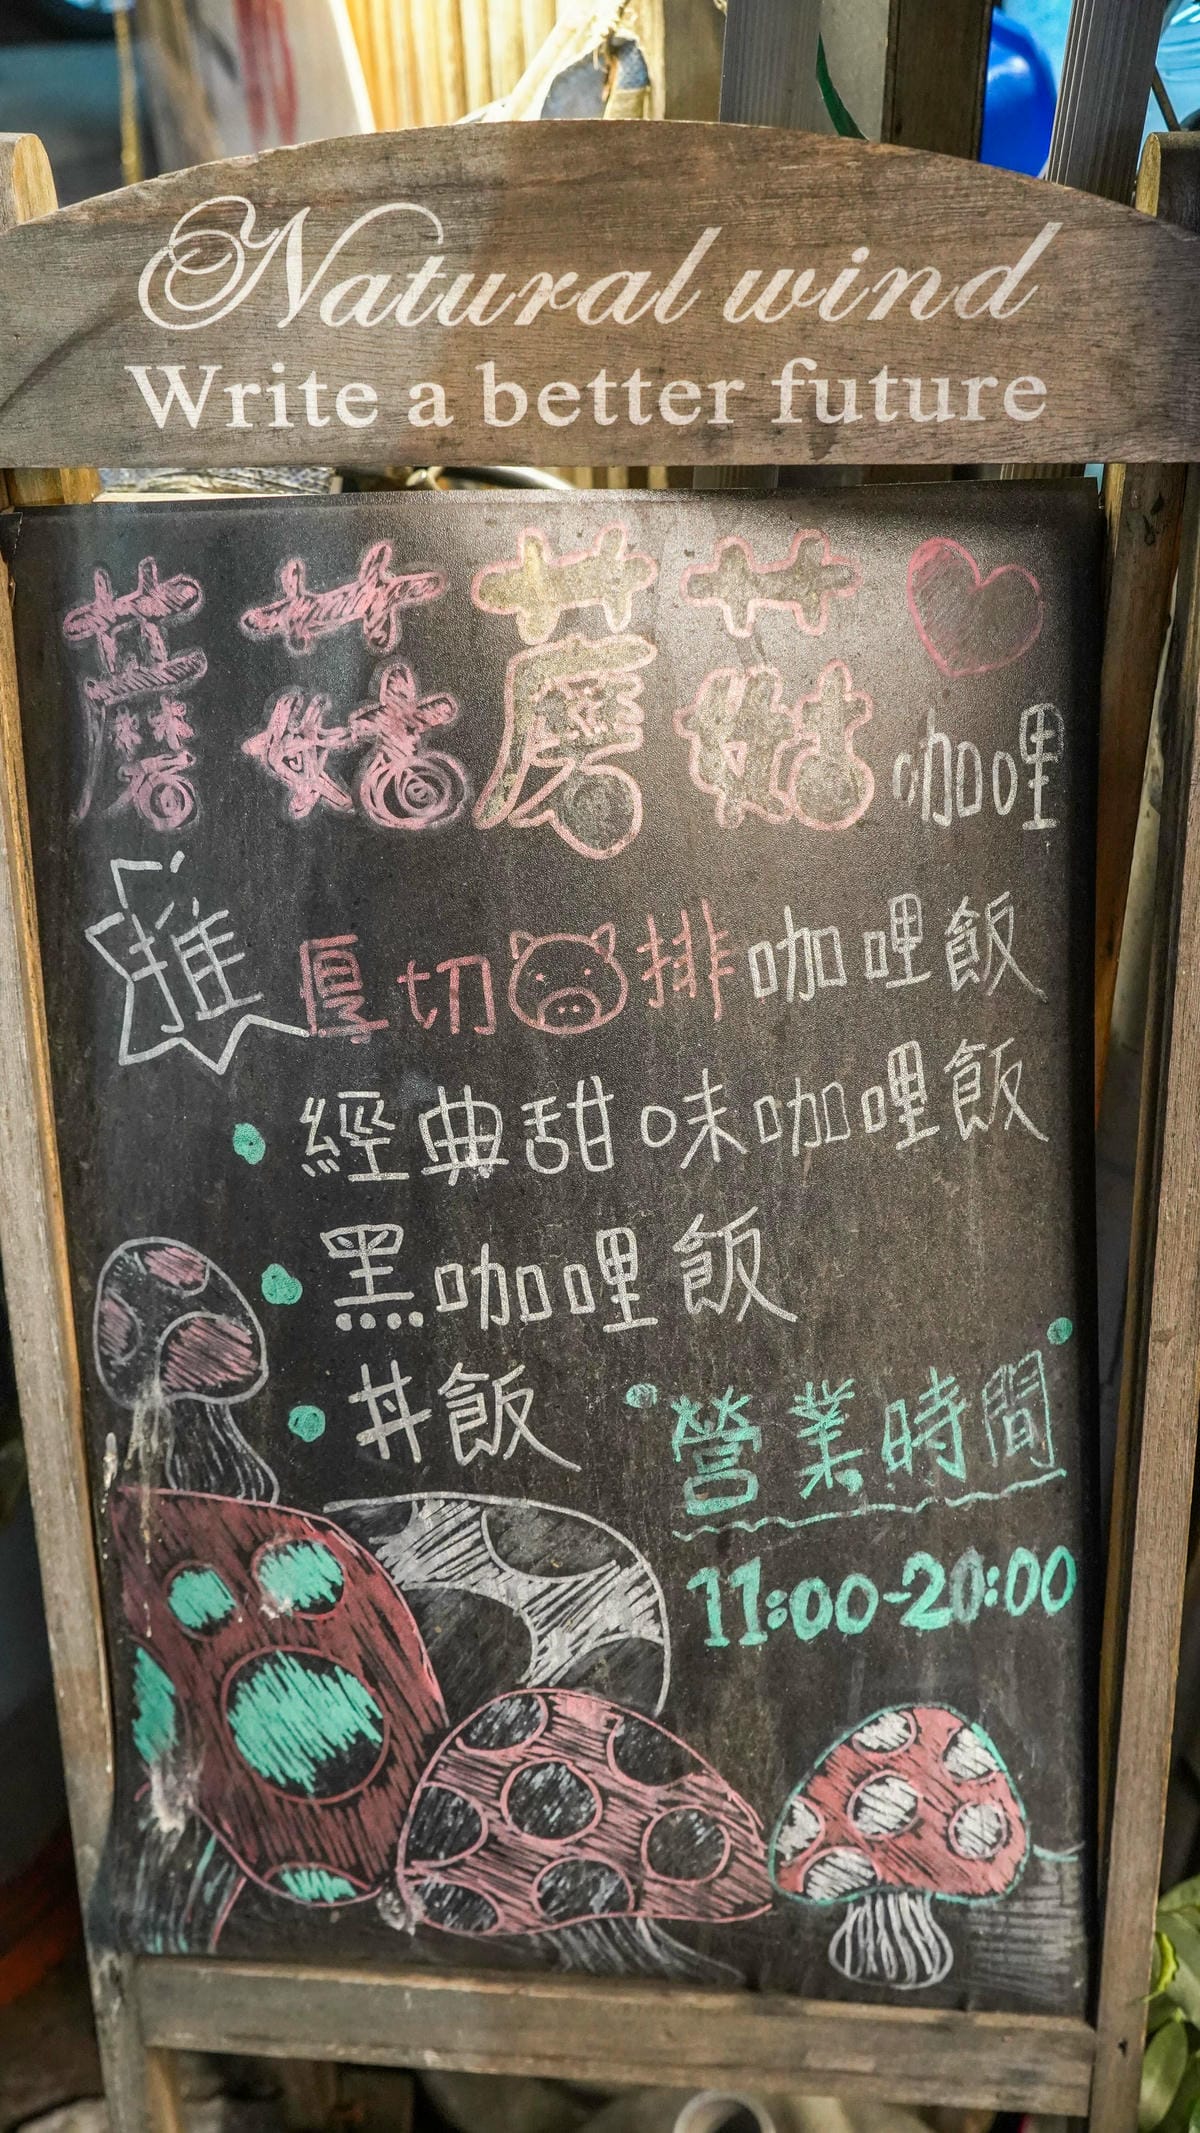 Natural wind
Write a better future
蘑菇蘑菇咖哩
推 厚切排咖哩飯
經典甜味咖哩飯
黑咖哩飯
丼飯
營業時間
11:00-20:00